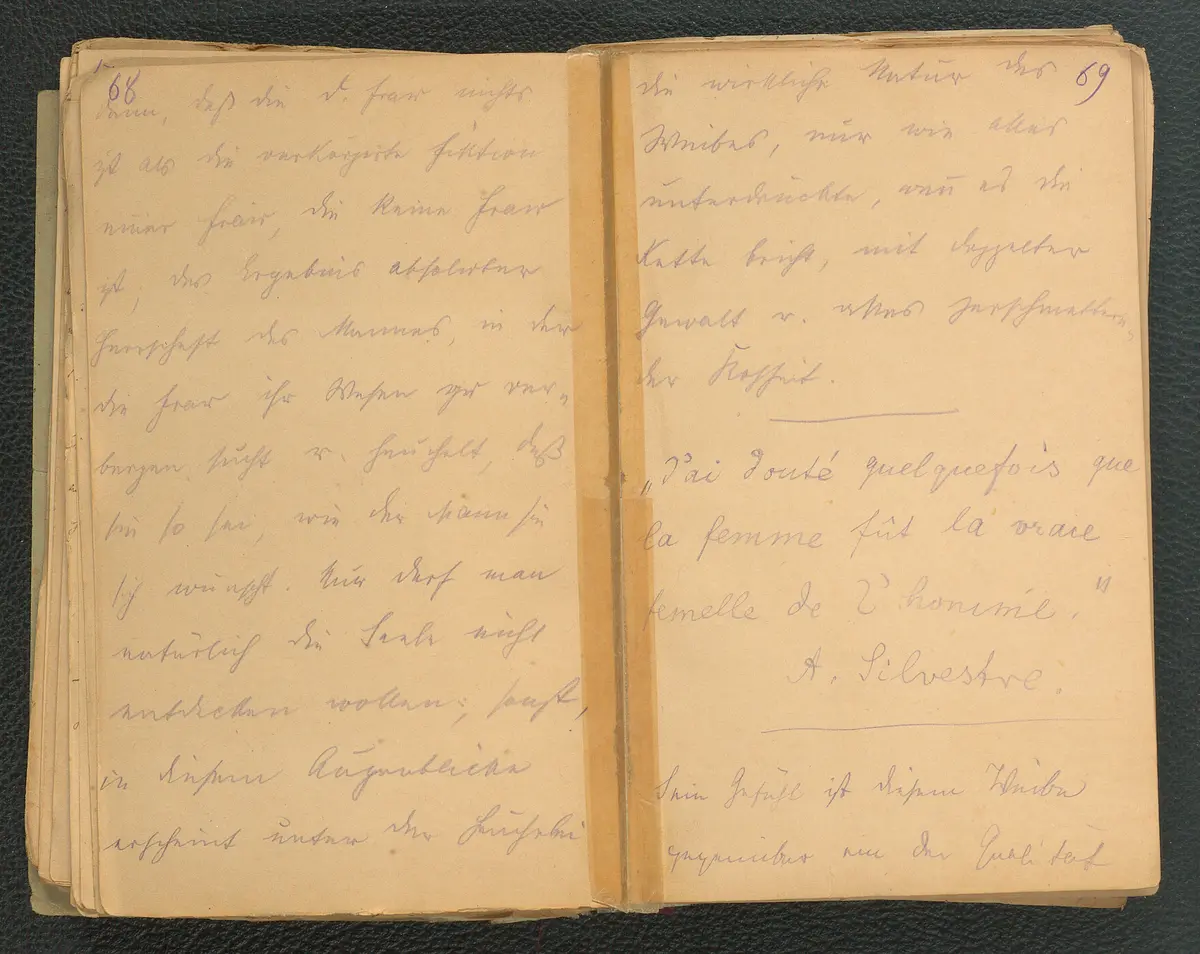 68
denn, daß die d. Frau nichts
ist als die verkörperte Fiktion
einer Frau, die keine Frau
ist, das Ergebnis absoluter
Herrschaft des Mannes, in der
die Frau ihr Wesen zu ver-
bergen sucht u. heuchelt, daß
sie so sei, wie der Mann sie
sich wünscht. Nur darf man
natürlich die Seele nicht
entdecken wollen; sonst,
in diesem Augenblicke
erscheint unter der Heuchelei
69
die wirkliche Natur des
Weibes, nur wie alles
unterdrückte, wenn es die
Kette bricht, mit doppelter
Gewalt u. alles zerschmettern-
der Rohheit.
„J'ai douté quelquefois que
la femme fût la vraie
femelle de l'homme."
A. Silvestre.
Sein Gefühl ist diesem Weibe
gegenüber von der Qualität